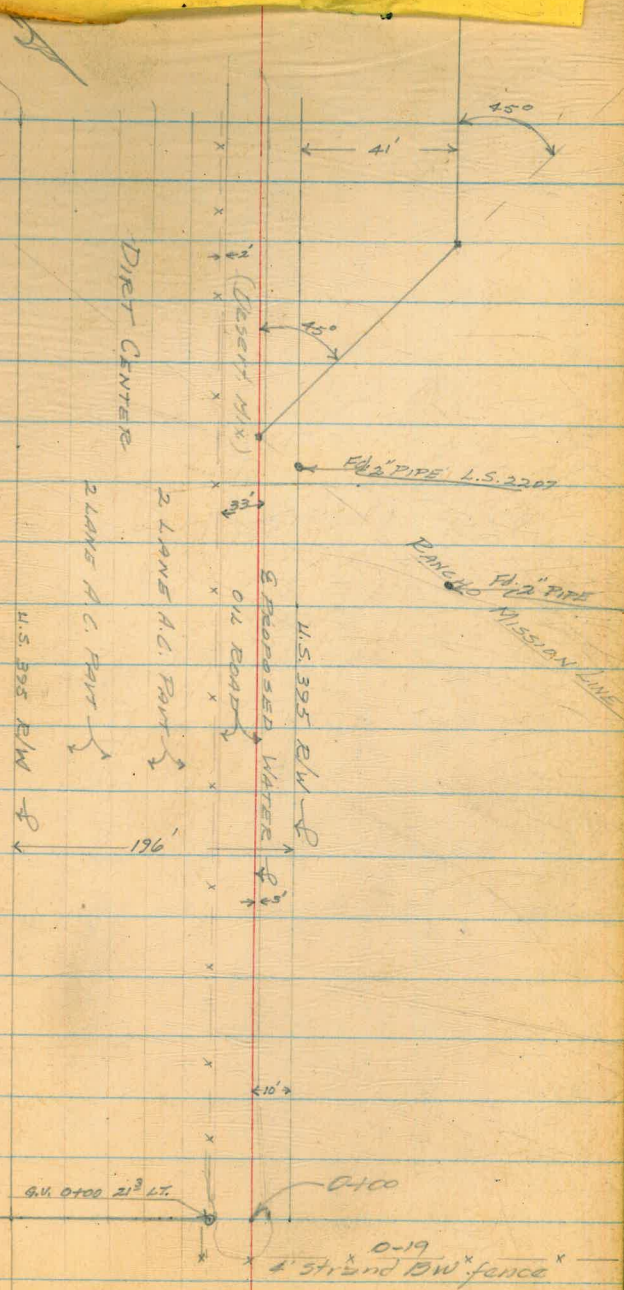 45°
41'
2'
(Desert Mix)
45°
DIRT CENTER
Fd. 2" PIPE L.S. 2207
33'
Fd. 2" PIPE
RANCHO MISSION LINE
2 LANE A.C. PAVT
2 LANE A.C. PAVT
OIL ROAD
PROPOSED WATER
U.S. 395 R/W
U.S. 395 R/W
196'
10'
G.V. 0+00 21³ LT.
0+00
0-19
4 strand BW fence